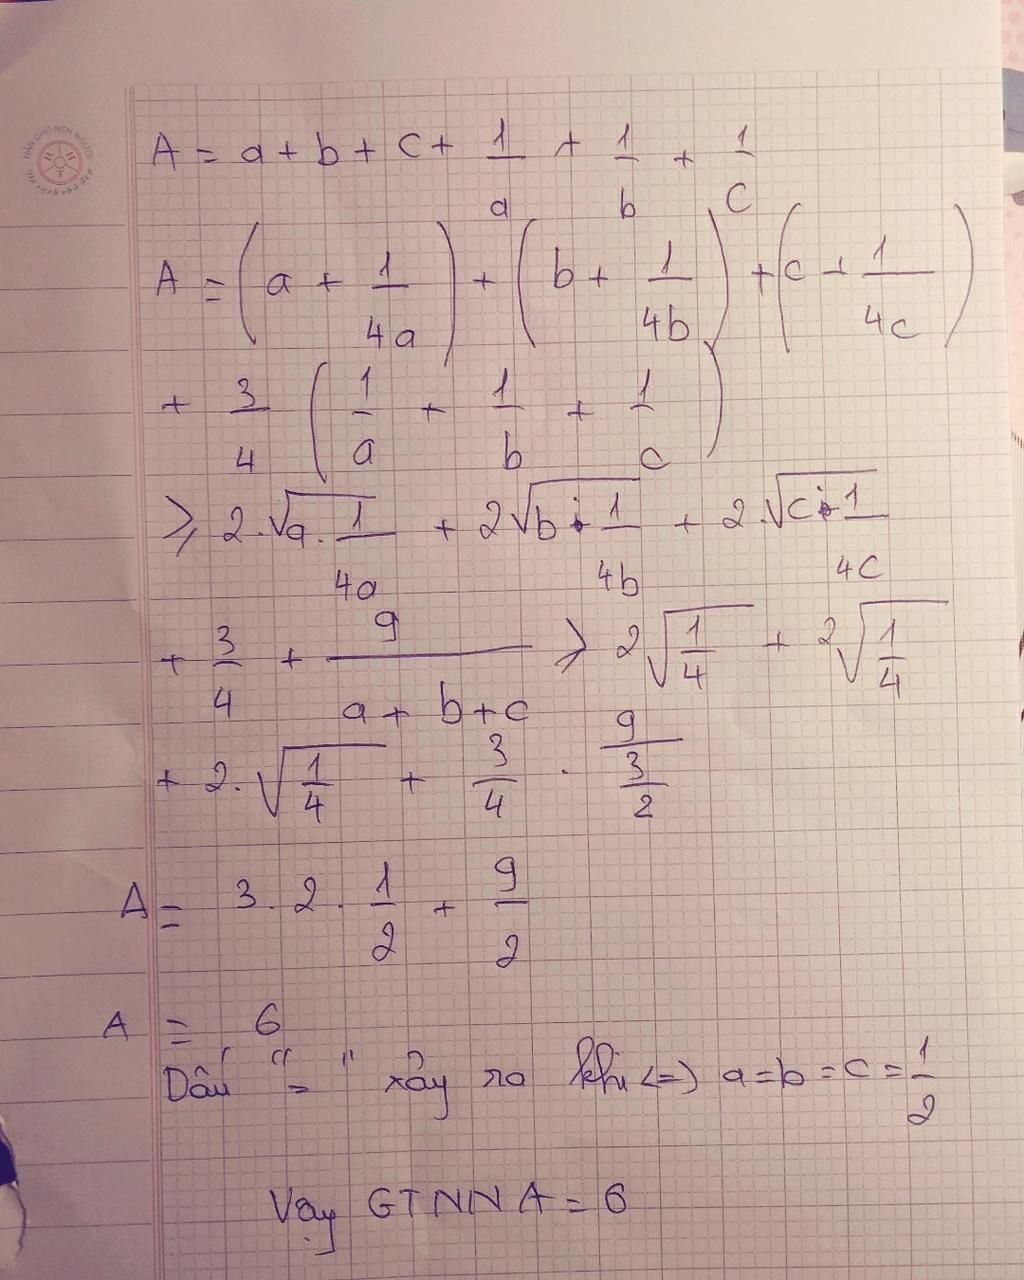 A = a + b + c + 1/a + 1/b + 1/c
A = (a + 1/4a) + (b + 1/4b) + (c + 1/4c)
+ 3/4 (1/a + 1/b + 1/c)
≥ 2.√a.1/4a + 2√b.1/4b + 2.√c.1/4c
+ 3/4 + 9/a + b + c ≥ 2√1/4 + 2√1/4
+ 2.√1/4 + 3/4 . 9/3/2
A = 3.2.1/2 + 9/2
A = 6
Dấu "=" xảy ra khi <=> a = b = c = 1/2
Vậy GTNN A = 6